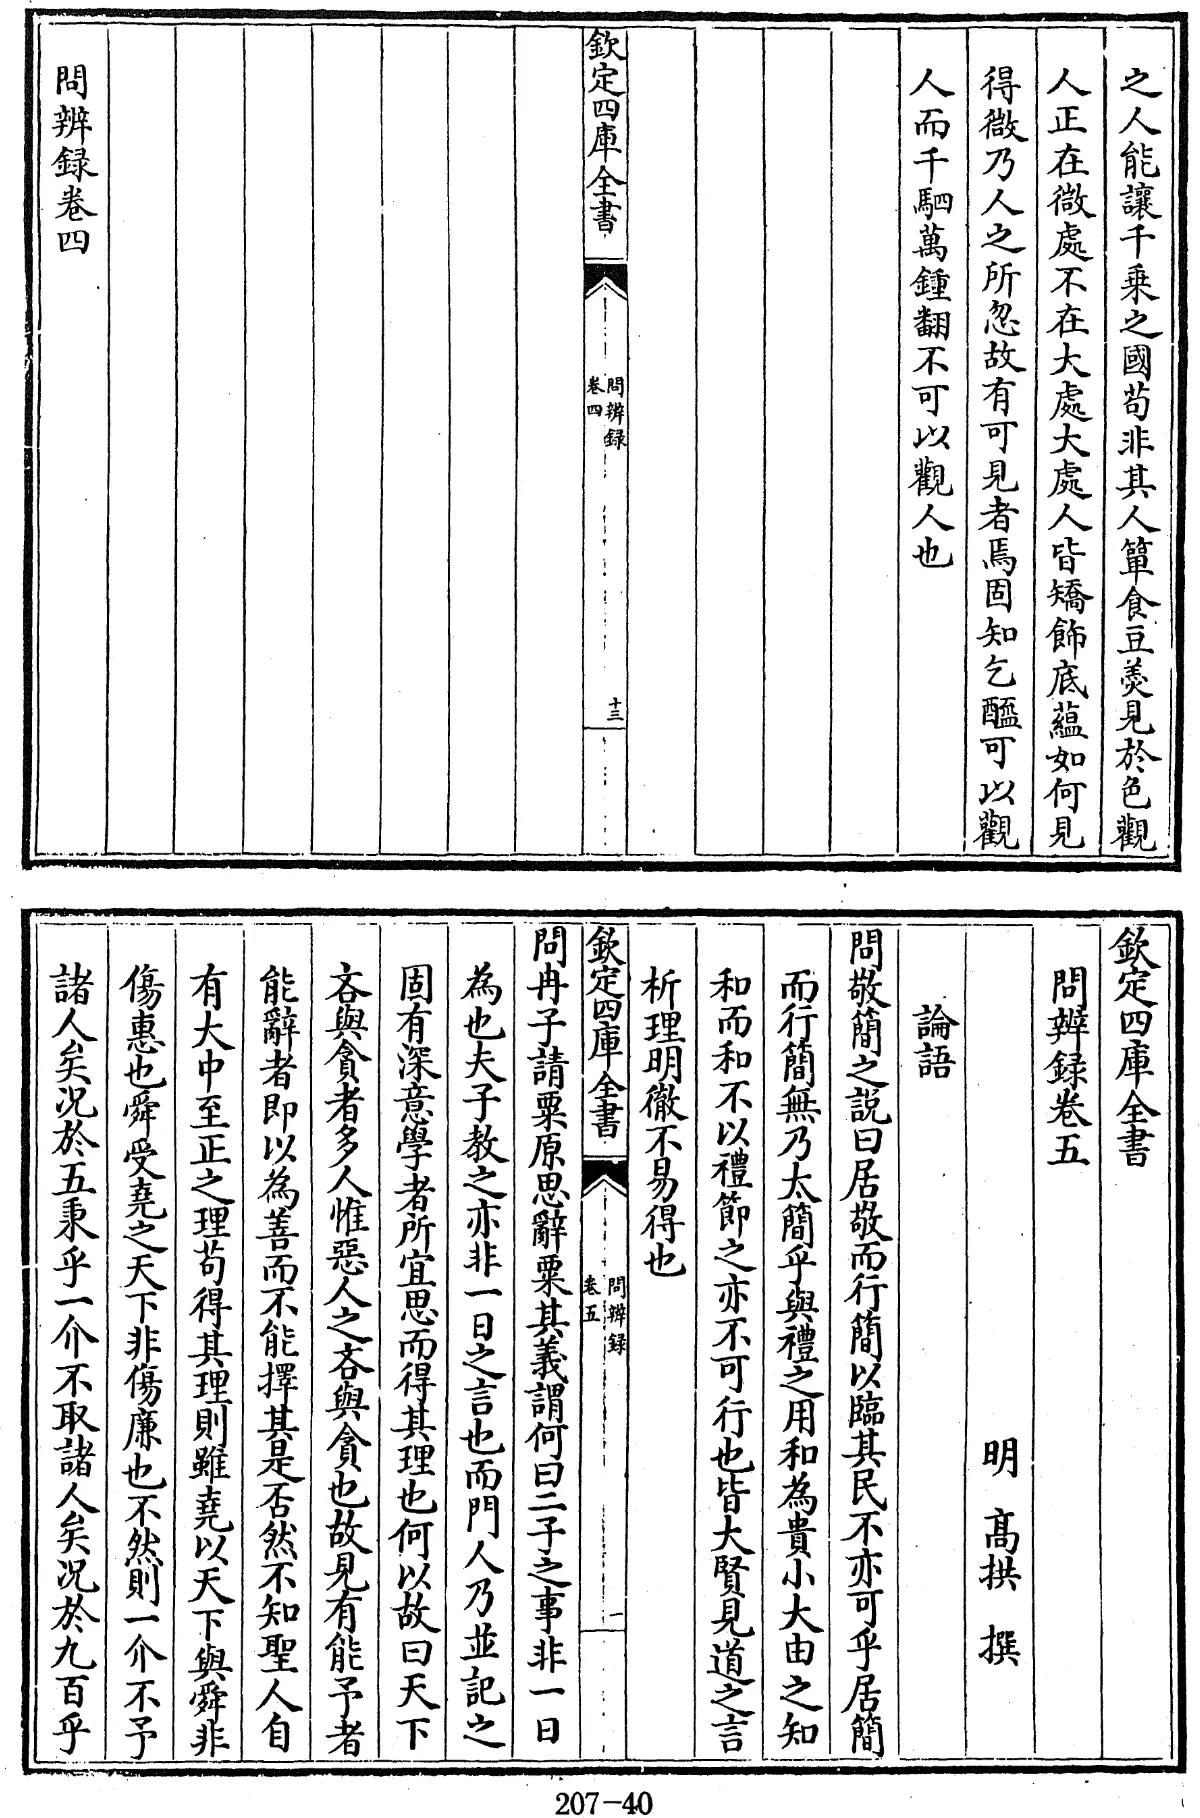 之人能讓千乗之國苟非其人簞食豆羮見於色觀
人正在微處不在大處大處人皆矯飾底藴如何見
得微乃人之所忽故有可見者焉固知乞醯可以觀
人而千駟萬鍾翻不可以觀人也
欽定四庫全書
問辨録
卷四
十三
問辨録卷四
欽定四庫全書
問辨録卷五
明 髙拱 撰
論語
問敬簡之説曰居敬而行簡以臨其民不亦可乎居簡
而行簡無乃太簡乎與禮之用和為貴小大由之知
和而和不以禮節之亦不可行也皆大賢見道之言
析理明徹不易得也
欽定四庫全書
問辨録
卷五
一
問冉子請粟原思辭粟其義謂何曰二子之事非一日
為也夫子教之亦非一日之言也而門人乃並記之
固有深意學者所宜思而得其理也何以故曰天下
吝與貪者多人惟惡人之吝與貪也故見有能予者
能辭者即以為善而不能擇其是否然不知聖人自
有大中至正之理苟得其理則雖堯以天下與舜非
傷惠也舜受堯之天下非傷廉也不然則一介不予
諸人矣况於五秉乎一介不取諸人矣况於九百乎
207-40